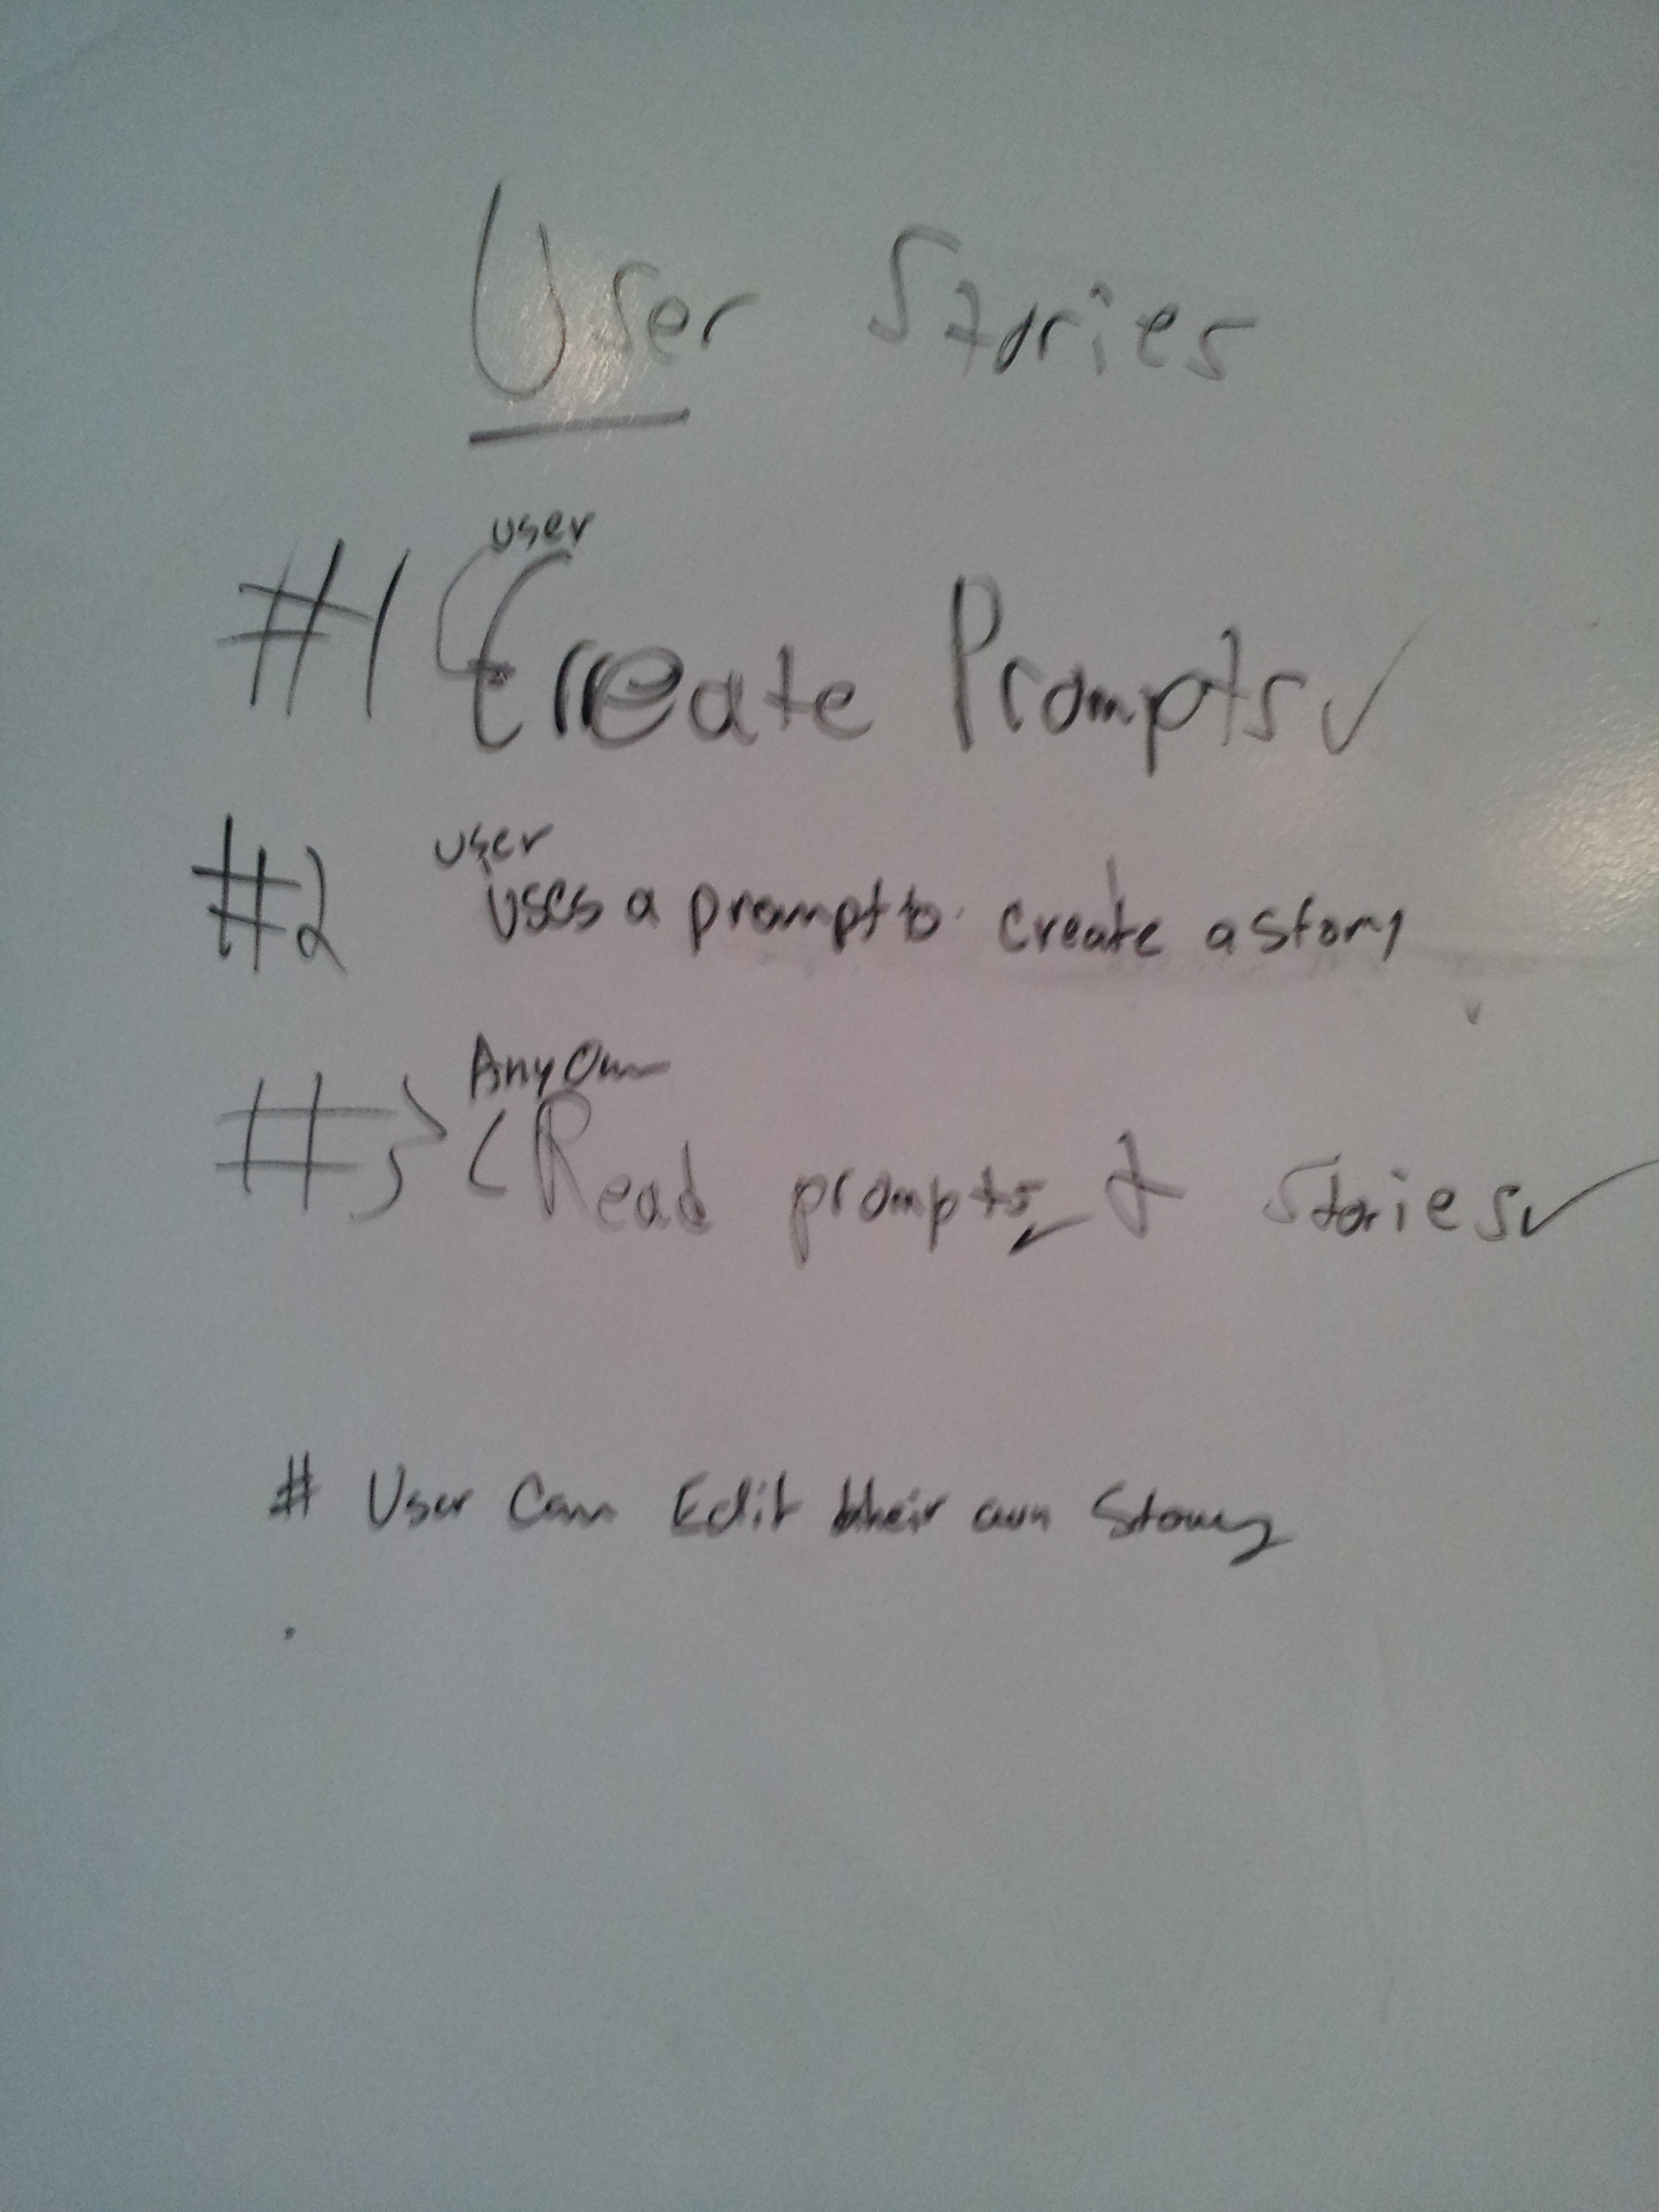 User Stories
user
#1 Create Prompts ✓
user
#2 uses a prompt to create a story
Anyone
#3 Read prompts ✓ & Stories ✓
# User Can Edit their own Story